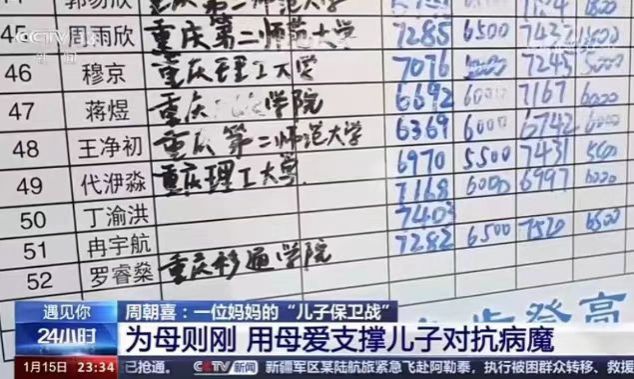 45 周雨欣 重庆第二师范大学 7285 6500 7432
46 穆京 重庆理工大学 7076 7245 5000
47 蒋煜 重庆 学院 6692 6000 7167 6000
48 王净初 重庆第二师范大学 6369 6000 6742 6000
49 代洢淼 重庆理工大学 6970 5500 7431
50 丁渝洪 7168 6000 6997 6000
51 冉宇航 7403
52 罗睿燊 重庆移通学院 7282 6500 7520 6500
步登高
遇见你 周朝喜：一位妈妈的“儿子保卫战”
24小时 为母则刚 用母爱支撑儿子对抗病魔
1月15日 23:34 已抢通。 CCTV 新闻 新疆军区某陆航旅紧急飞赴阿勒泰，执行被困群众转移、救援